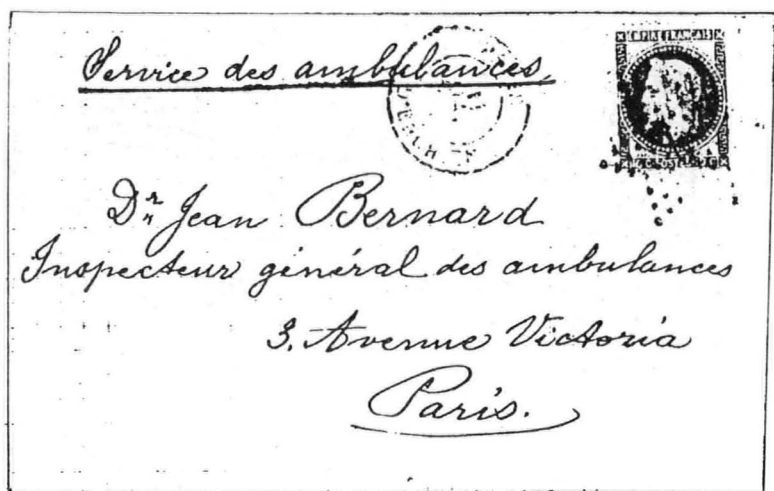 Service des ambulances
EMPIRE FRANÇAIS
Dr. Jean Bernard
Inspecteur général des ambulances
3. Avenue Victoria
Paris.